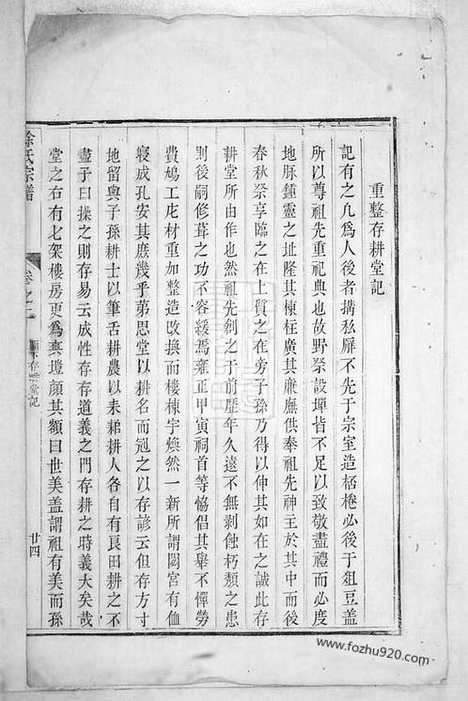 重整存耕堂記
記有之凡爲人後者搆私屏不先于宗室造桮棬必後于俎豆蓋
所以尊祖先重祀典也故野祭設墠皆不足以致敬盡禮而必度
地脉鍾靈之址隆其棟柱廣其廡供奉祖先神主於其中而後
春秋祭享臨之在上質之在旁子孫乃得以伸其如在之誠此存
耕堂所由作也然祖先剏之于前歷年久遠不無剝蝕朽類之患
則後嗣修葺之功不容緩焉雍正甲寅祠首等恊倡其舉不憚勞
費鳩工庀材重加整造改換而樓棟宇煥然一新所謂閟宮有侐
寢成孔安其庶幾乎第思堂以耕名而冠之以存諺云但存方寸
地留與子孫耕士以筆舌耕農以耒耜耕人各自有良田耕之不
盡子曰操之則存易云成性存存道義之門存耕之時義大矣哉
堂之右有七架樓房更爲奕壇顏其額曰世美蓋謂祖有美而孫
徐氏宗譜
卷之一
存耕堂記
廿四
www.fozhu920.com